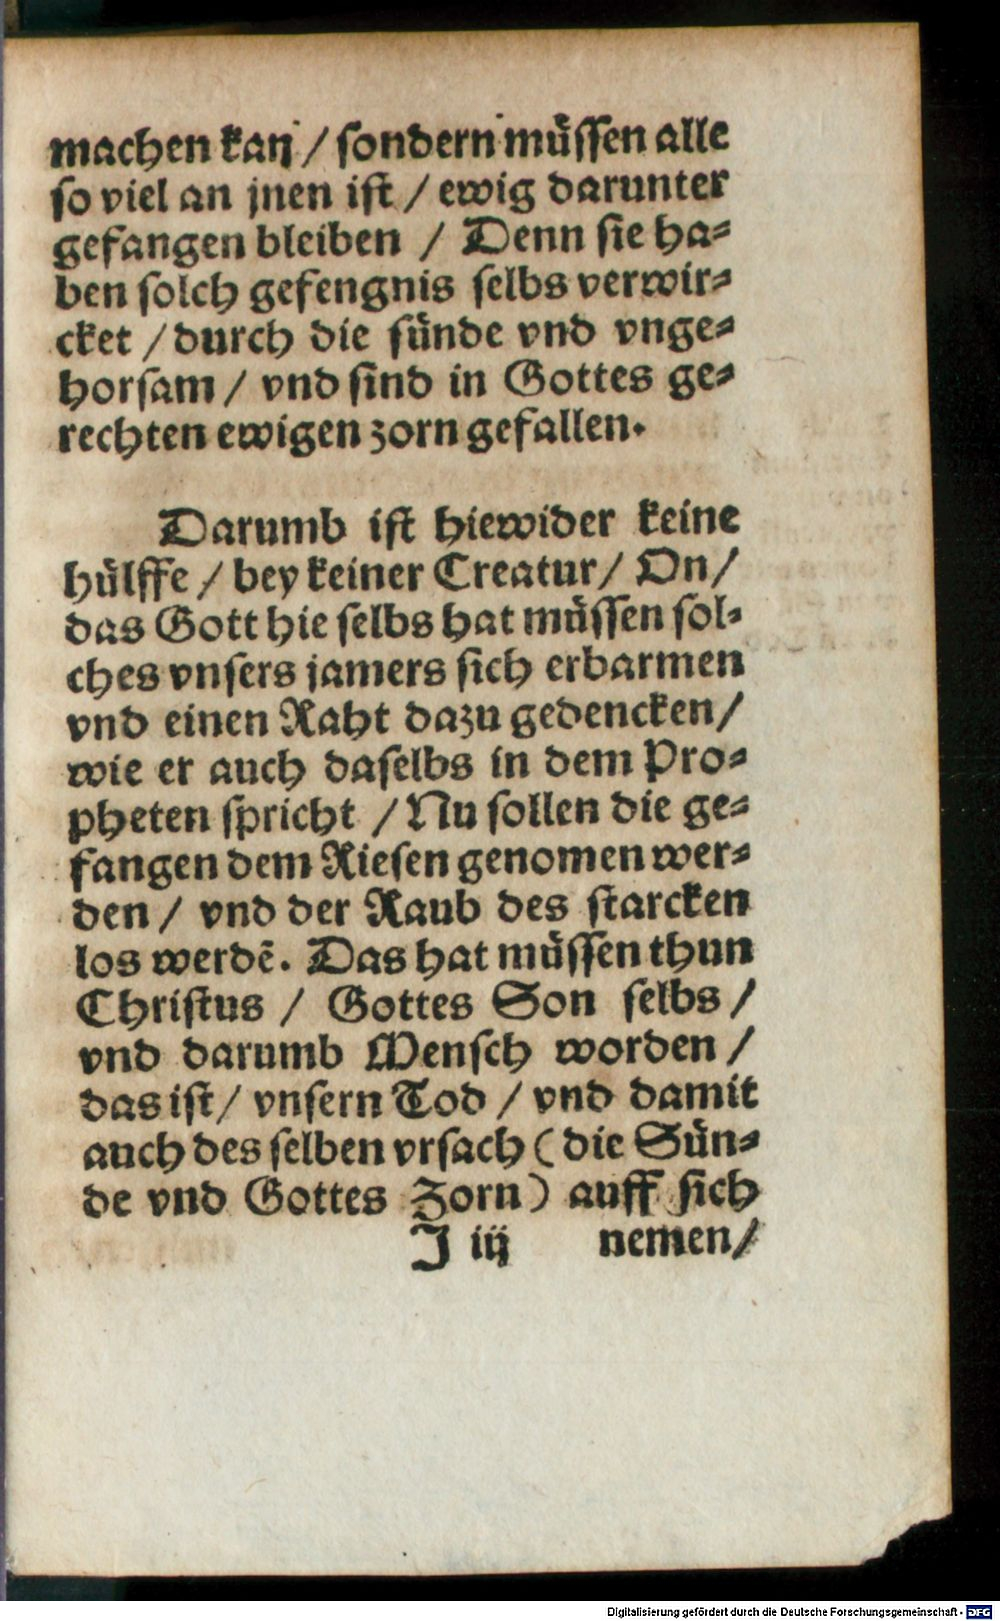 machen kan / sondern müssen alle
so viel an jnen ist / ewig darunter
gefangen bleiben / Denn sie ha-
ben solch gefengnis selbs verwir-
cket / durch die sünde vnd vnge-
horsam / vnd sind in Gottes ge-
rechten ewigen zorn gefallen.
Darumb ist hiewider keine
hülffe / bey keiner Creatur / On /
das Gott hie selbs hat müssen sol-
ches vnsers jamers sich erbarmen
vnd einen Raht dazu gedencken /
wie er auch daselbs in dem Pro-
pheten spricht / Nu sollen die ge-
fangen dem Riesen genomen wer-
den / vnd der Raub des starcken
los werdē. Das hat müssen thun
Christus / Gottes Son selbs /
vnd darumb Mensch worden /
das ist / vnsern Tod / vnd damit
auch des selben vrsach (die Sün-
de vnd Gottes Zorn) auff sich
J iij nemen /
Digitalisierung gefördert durch die Deutsche Forschungsgemeinschaft - DFG